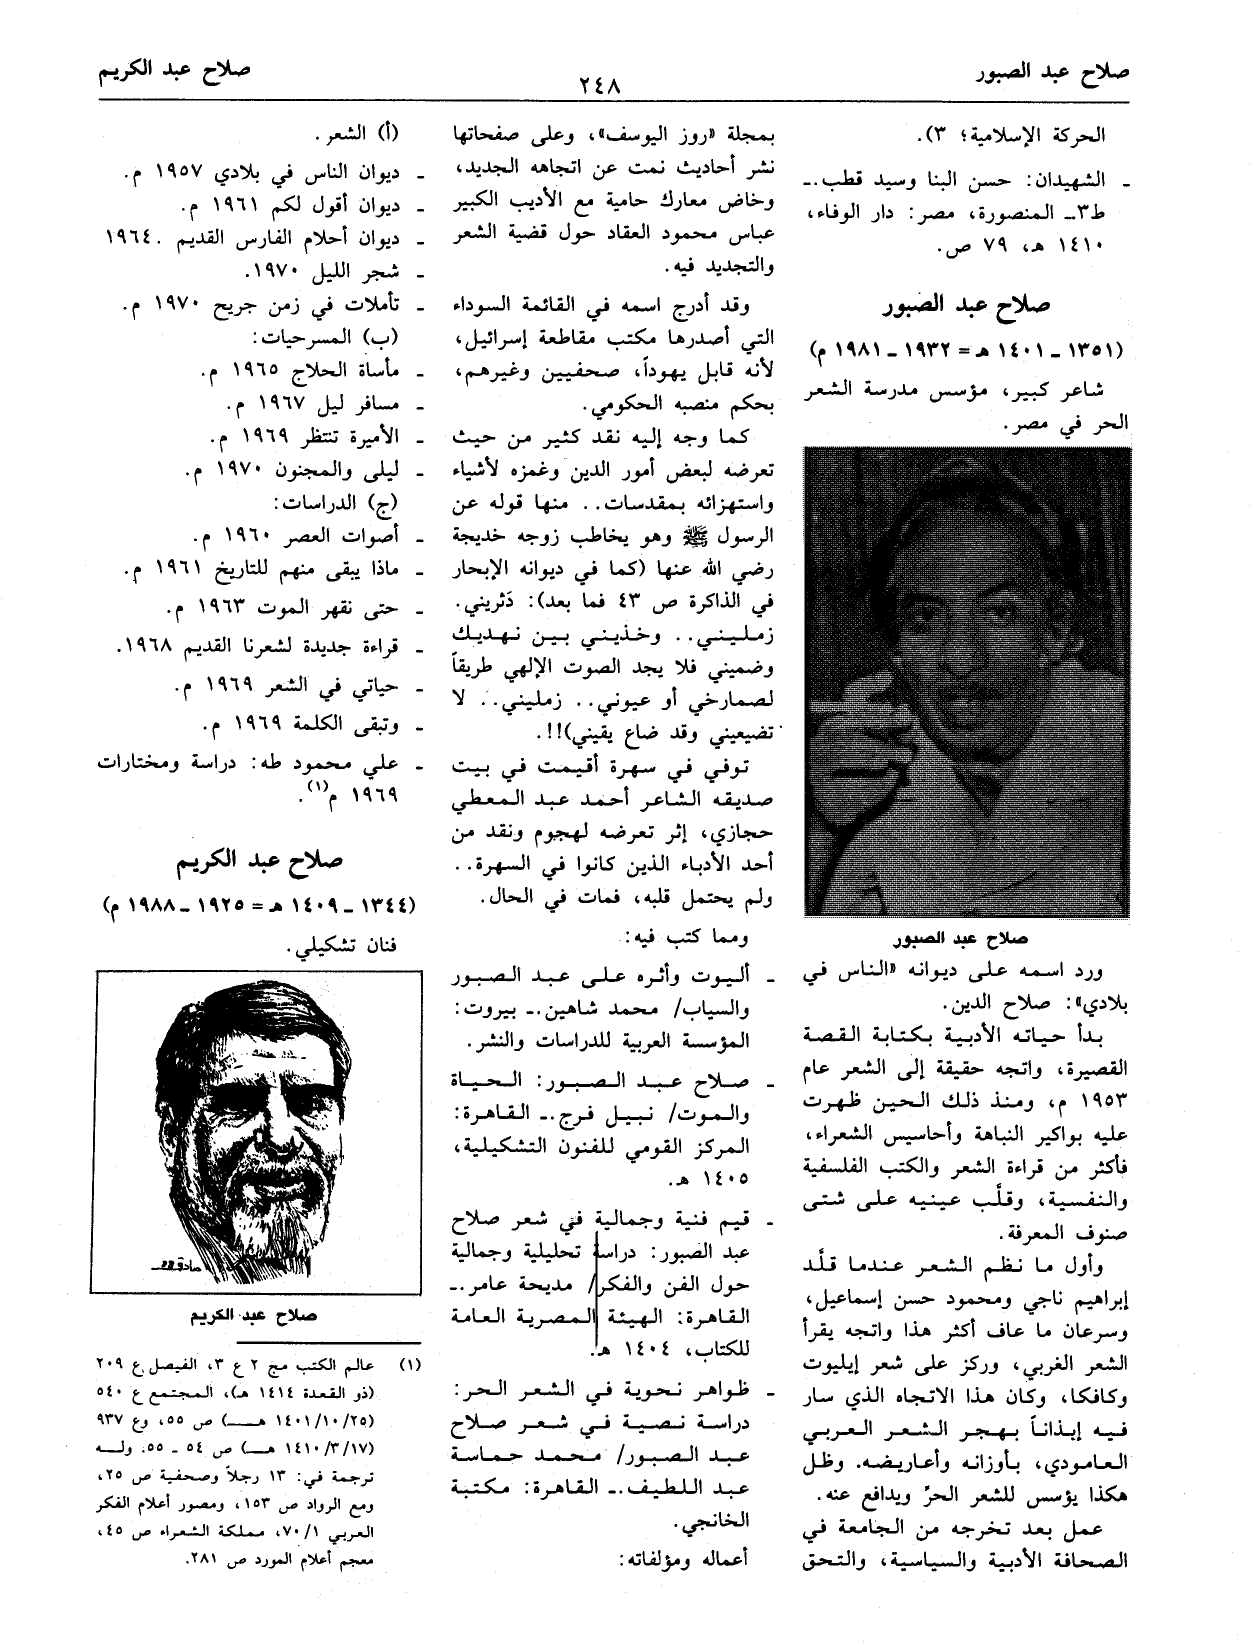 صلاح عبد الصبور
٢٤٨
صلاح عبد الكريم
الحركة الإسلامية؛ ٣).
ـ الشهيدان: حسن البنا وسيد قطب.ـ
ط٣ـ المنصورة، مصر: دار الوفاء،
١٤١٠ هـ، ٧٩ ص.
صلاح عبد الصبور
(١٣٥١ ـ ١٤٠١ هـ = ١٩٣٢ ـ ١٩٨١ م)
شاعر كبير، مؤسس مدرسة الشعر
الحر في مصر.
صلاح عبد الصبور
ورد اسمه على ديوانه «الناس في
بلادي»: صلاح الدين.
بدأ حياته الأدبية بكتابة القصة
القصيرة، واتجه حقيقة إلى الشعر عام
١٩٥٣ م، ومنذ ذلك الحين ظهرت
عليه بواكير النباهة وأحاسيس الشعراء،
فأكثر من قراءة الشعر والكتب الفلسفية
والنفسية، وقلَّب عينيه على شتى
صنوف المعرفة.
وأول ما نظم الشعر عندما قلَّد
إبراهيم ناجي ومحمود حسن إسماعيل،
وسرعان ما عاف أكثر هذا واتجه يقرأ
الشعر الغربي، وركز على شعر إيليوت
وكافكا، وكان هذا الاتجاه الذي سار
فيه إيذاناً بهجر الشعر العربي
العامودي، بأوزانه وأعاريضه. وظل
هكذا يؤسس للشعر الحرِّ ويدافع عنه.
عمل بعد تخرجه من الجامعة في
الصحافة الأدبية والسياسية، والتحق
بمجلة «روز اليوسف»، وعلى صفحاتها
نشر أحاديث نمت عن اتجاهه الجديد،
وخاض معارك حامية مع الأديب الكبير
عباس محمود العقاد حول قضية الشعر
والتجديد فيه.
وقد أدرج اسمه في القائمة السوداء
التي أصدرها مكتب مقاطعة إسرائيل،
لأنه قابل يهوداً، صحفيين وغيرهم،
بحكم منصبه الحكومي.
كما وجه إليه نقد كثير من حيث
تعرضه لبعض أمور الدين وغمزه لأشياء
واستهزائه بمقدسات.. منها قوله عن
الرسول ﷺ وهو يخاطب زوجه خديجة
رضي الله عنها (كما في ديوانه الإبحار
في الذاكرة ص ٤٣ فما بعد): دَثريني.
زمليني.. وخذيني بين نهديك
وضميني فلا يجد الصوت الإلهي طريقاً
لصمارخي أو عيوني.. زمليني.. لا
تضيعيني وقد ضاع يقيني)!!.
توفي في سهرة أقيمت في بيت
صديقه الشاعر أحمد عبد المعطي
حجازي، إثر تعرضه لهجوم ونقد من
أحد الأدباء الذين كانوا في السهرة..
ولم يحتمل قلبه، فمات في الحال.
ومما كتب فيه:
ـ أليوت وأثره على عبد الصبور
والسياب/ محمد شاهين.ـ بيروت:
المؤسسة العربية للدراسات والنشر.
ـ صلاح عبد الصبور: الحياة
والموت/ نبيل فرج.ـ القاهرة:
المركز القومي للفنون التشكيلية،
١٤٠٥ هـ.
ـ قيم فنية وجمالية في شعر صلاح
عبد الصبور: دراسة تحليلية وجمالية
حول الفن والفكر/ مديحة عامر.ـ
القاهرة: الهيئة المصرية العامة
للكتاب، ١٤٠٤ هـ.
ـ ظواهر نحوية في الشعر الحر:
دراسة نصية في شعر صلاح
عبد الصبور/ محمد حماسة
عبد اللطيف.ـ القاهرة: مكتبة
الخانجي.
أعماله ومؤلفاته:
(أ) الشعر.
ـ ديوان الناس في بلادي ١٩٥٧ م.
ـ ديوان أقول لكم ١٩٦١ م.
ـ ديوان أحلام الفارس القديم .١٩٦٤
ـ شجر الليل ١٩٧٠.
ـ تأملات في زمن جريح ١٩٧٠ م.
(ب) المسرحيات:
ـ مأساة الحلاج ١٩٦٥ م.
ـ مسافر ليل ١٩٦٧ م.
ـ الأميرة تنتظر ١٩٦٩ م.
ـ ليلى والمجنون ١٩٧٠ م.
(ج) الدراسات:
ـ أصوات العصر ١٩٦٠ م.
ـ ماذا يبقى منهم للتاريخ ١٩٦١ م.
ـ حتى نقهر الموت ١٩٦٣ م.
ـ قراءة جديدة لشعرنا القديم ١٩٦٨.
ـ حياتي في الشعر ١٩٦٩ م.
ـ وتبقى الكلمة ١٩٦٩ م.
ـ علي محمود طه: دراسة ومختارات
١٩٦٩ م(١).
صلاح عبد الكريم
(١٣٤٤ ـ ١٤٠٩ هـ = ١٩٢٥ ـ ١٩٨٨ م)
فنان تشكيلي.
صلاح عبد الكريم
(١) عالم الكتب مج ٢ ع ٣، الفيصل ع ٢٠٩
(ذو القعدة ١٤١٤ هـ)، المجتمع ع ٥٤٠
(١٤٠١/١٠/٢٥ هـ) ص ٥٥، وع ٩٣٧
(١٤١٠/٣/١٧ هـ) ص ٥٤ ـ ٥٥. وله
ترجمة في: ١٣ رجلاً وصحفية ص ٢٥،
ومع الرواد ص ١٥٣، ومصور أعلام الفكر
العربي ٧٠/١، مملكة الشعراء ص ٤٥،
معجم أعلام المورد ص ٢٨١.